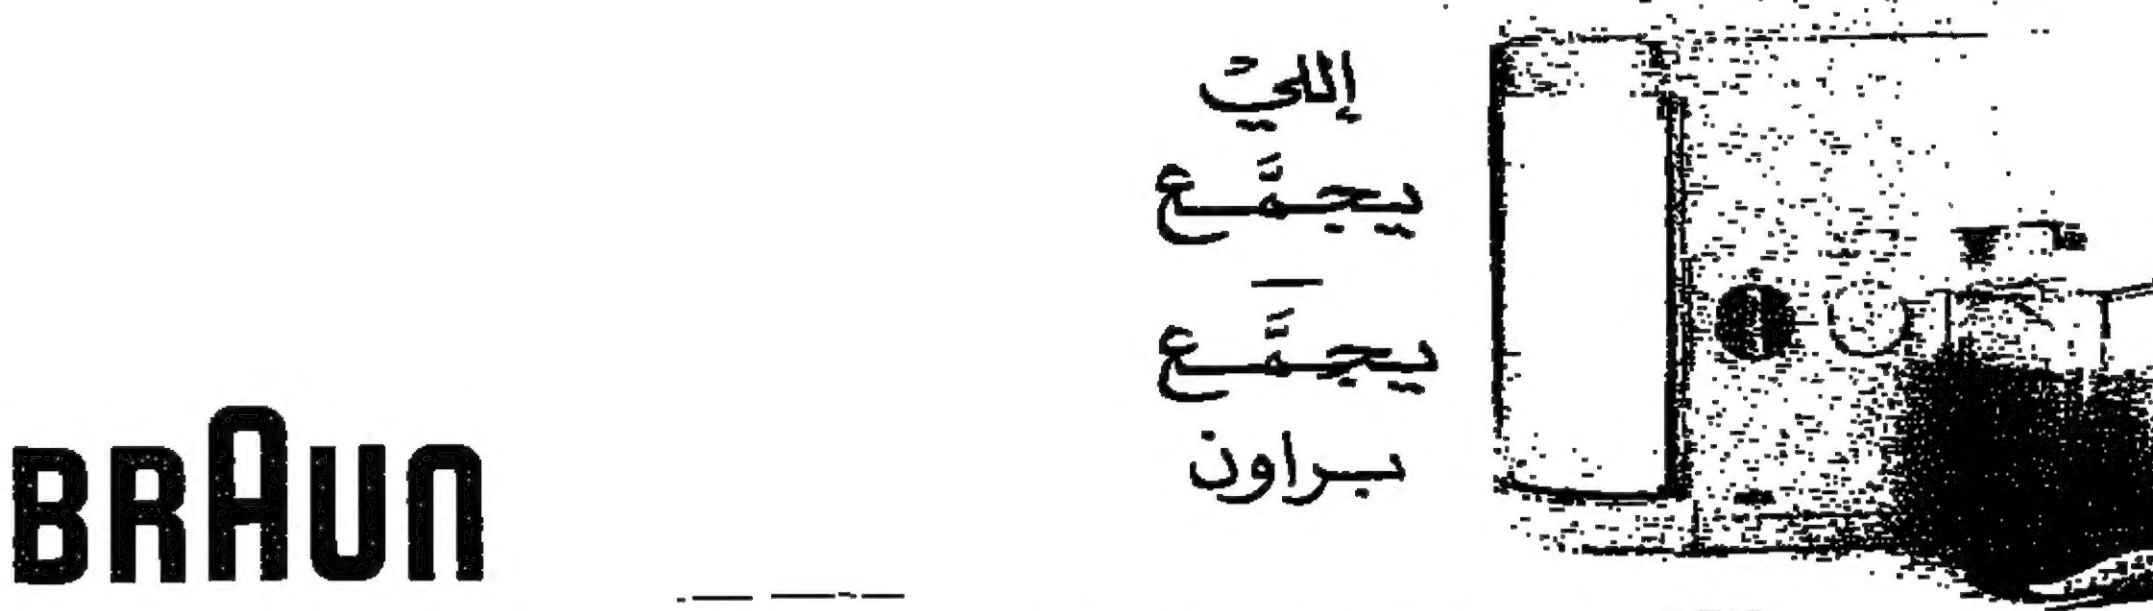 إللي
يجمَّع
—
يجمَّع
براون
BRAUN